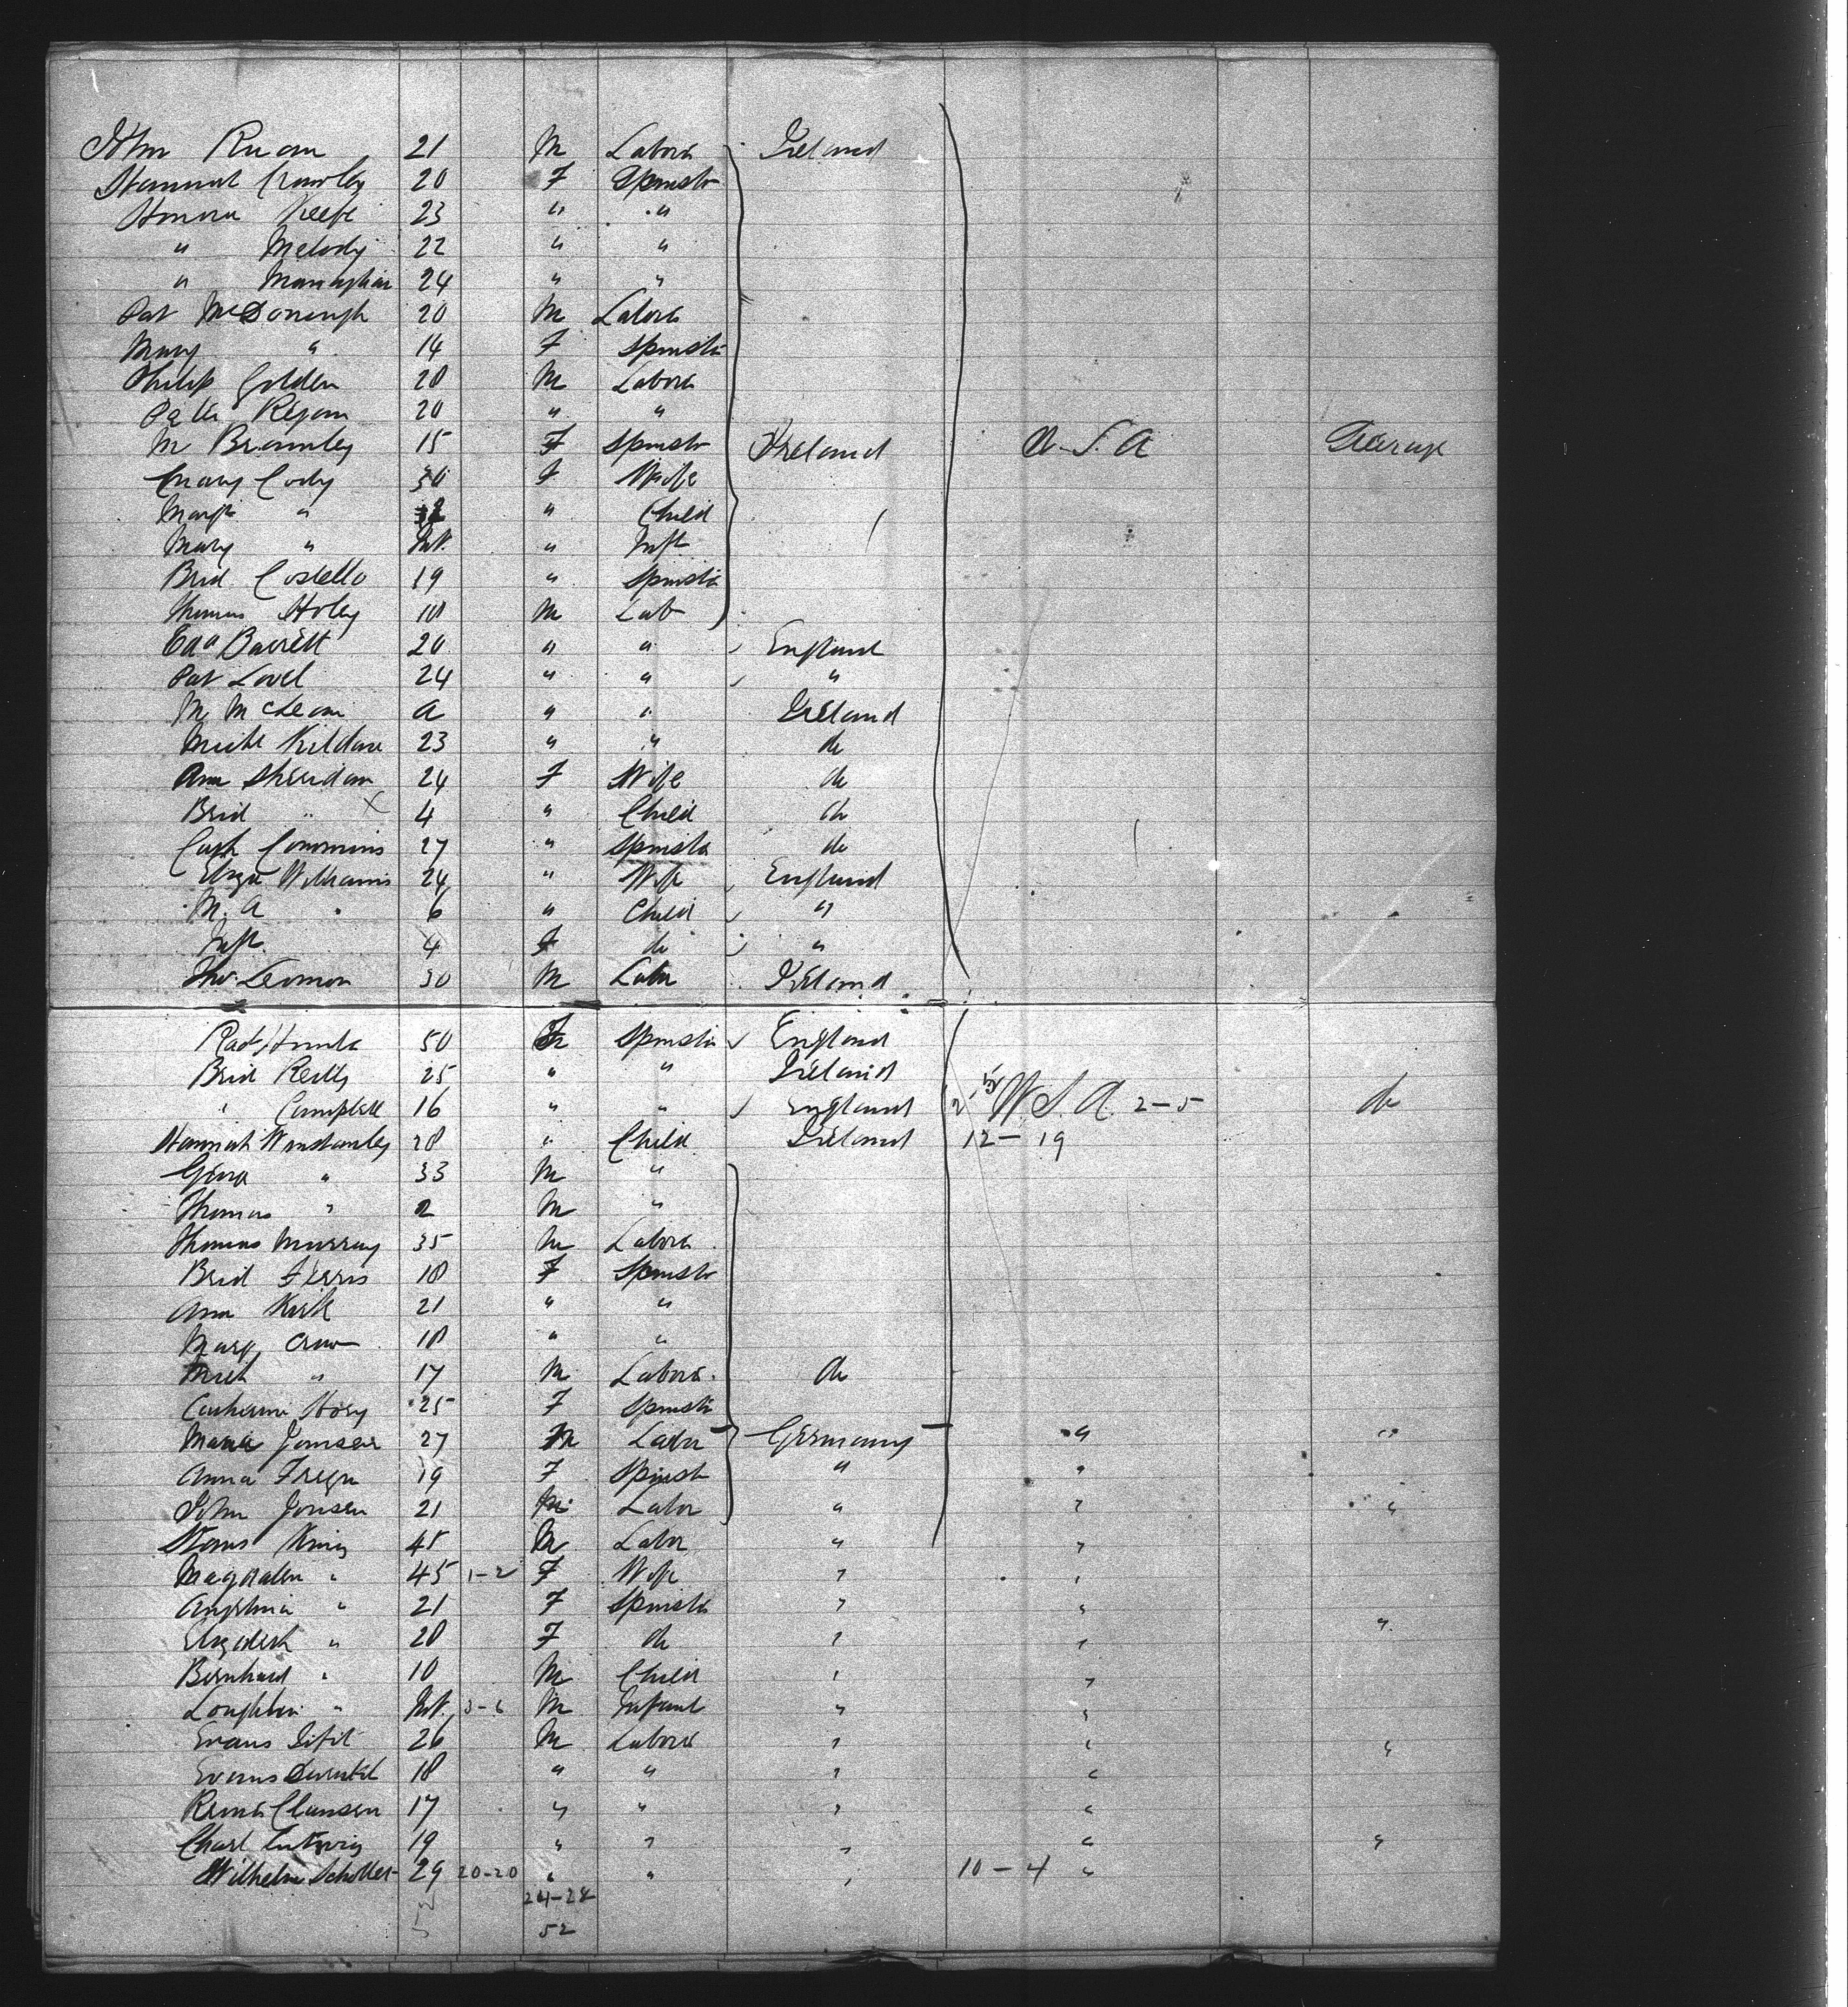 John Ruan 21 M Labor Ireland
Hannah Crowley 20 F Spinstr
Honora Keefe 23 " "
" Melody 22 " "
" Managhan 24 " "
Pat McDonough 20 M Labor
Mary " 14 F Spinstr
Philip Golden 20 M Labor
Regan 20 " "
M Bromley 15 F Spinstr Ireland U.S.A Steerage
Mary Cody 30 F Wife
Margt " " Child
Mary " Inft. " Inft
Brid Costello 19 " Spinstr
Thomas Holey 18 M Lab
Edd Barrett 20 " " England
Pat Lovel 24 " " "
M McLean a " " Ireland
Michl Kildare 23 " " do
Ann Sheridan 24 F Wife do
Brid " 4 " Child do
Cath Commins 27 " Spinstr do
Eliza Williams 24 " Wife England
M. A " 6 " Child "
Inft. 4 F do "
Tho. Lennon 30 M Labr Ireland
50 F Spinstr England
Brid Reilly 25 " " Ireland
" Campbell 16 " " England U.S.A. 2-5 do
Hannah Winstanley 28 " Child Ireland 12-19
" 33 M "
Thomas " 2 M "
Thomas Murray 35 M Labor
Brid Ferris 18 F Spinstr
Ann Kirk 21 " "
Margt Crow 18 " "
Mich " 17 M Labor. do
Catherine Hory 25 F Spinstr
Maria Jomsen 27 M Labr Germany " "
Anna 19 F Spinstr " "
John Jonsen 21 M Labor " " "
King 45 M Labor " "
Magdalen " 45 1-2 F Wife " "
Angelina " 21 F Spinstr " "
Elizabeth " 20 F do " " "
Bernhard " 10 M Child " "
" Inft. 3-6 M Infant " "
Evans 26 M Labor " " "
Evans 18 " " " "
Clausen 17 " " " "
Charl Ludwig 19 " " " " "
Wilhelm Scholler 29 20-20 " " " 10-4 "
52 24-28
52